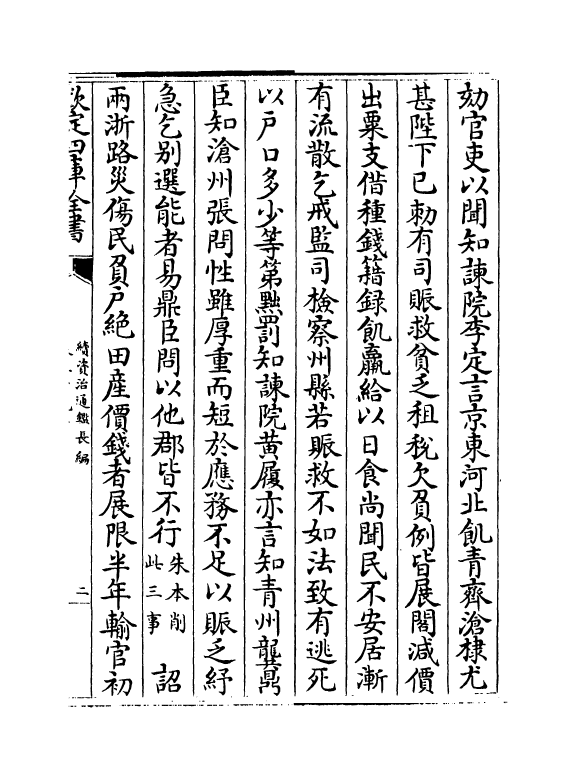 劾官吏以聞知諫院李定言京東河北飢青齊滄棣尤
甚陛下已勅有司賑救貧乏租稅欠負例皆展閣減價
出粟支借種錢籍録飢羸給以日食尚聞民不安居漸
有流散乞戒監司檢察州縣若賑救不如法致有逃死
以戶口多少等第黜罰知諫院黄履亦言知青州龔鼎
臣知滄州張問性雖厚重而短於應務不足以賑乏紓
急乞别選能者易鼎臣問以他郡皆不行朱本削此三事 詔
兩浙路災傷民負戶絶田産價錢者展限半年輸官初
欽定四庫全書
續資治通鑑長編
二